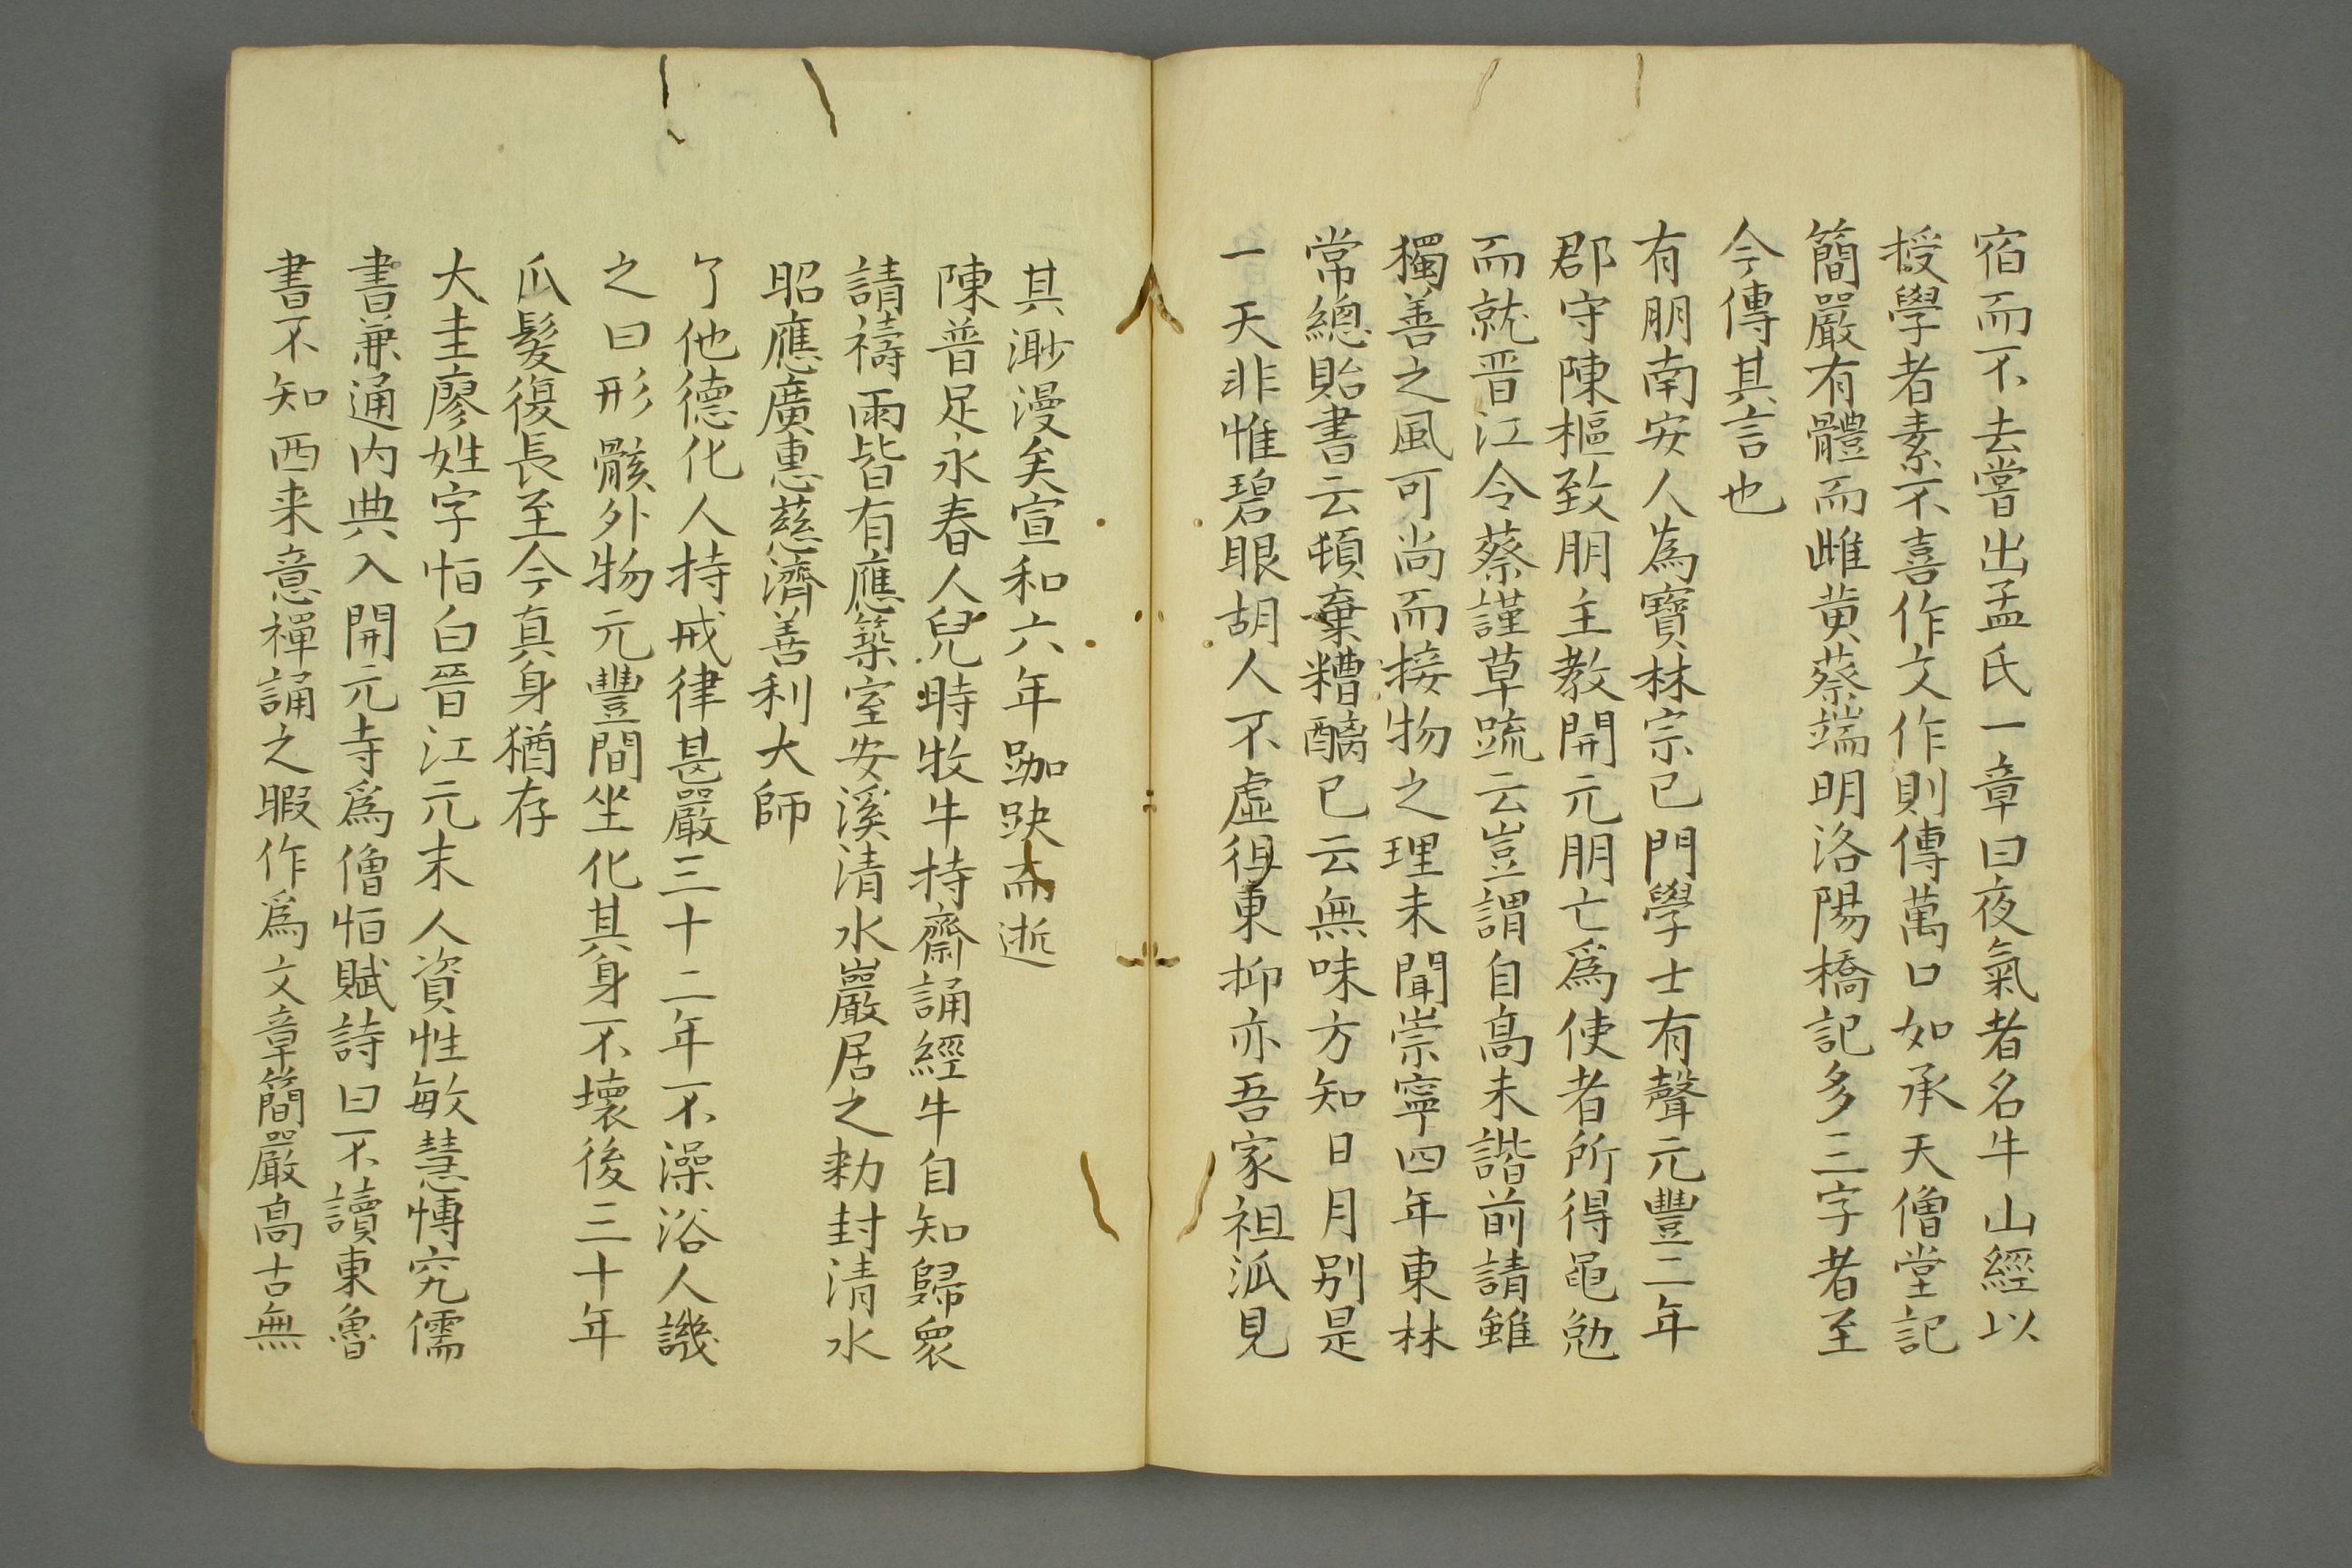 宿而不去嘗出孟氏一章曰夜氣者名牛山經以
授學者素不喜作文作則傳萬口如承天僧堂記
簡嚴有體而雌黄蔡端明洛陽橋記多三字者至
今傳其言也
有朋南安人為寳林宗已門學士有聲元豐二年
郡守陳樞致朋主教開元朋亡爲使者所得黽勉
而就晋江令蔡謹草䟽云豈謂自髙未諧前請雖
獨善之風可尚而接物之理未聞崇寧四年東林
常總貽書云頓棄糟醨已云無味方知日月别是
一天非惟碧眼胡人不虛徃東抑亦吾家祖泒見
其渺漫矣宣和六年跏趺而逝
陳普足永春人兒時牧牛持齋誦經牛自知歸衆
請禱雨皆有應築室安溪清水巖居之勑封清水
昭應廣惠慈濟善利大師
了他德化人持戒律甚嚴三十二年不澡浴人譏
之曰形骸外物元豐間坐化其身不壞後三十年
爪髮復長至今真身猶存
大圭廖姓字恒白晉江元末人資性敏慧慱究儒
書兼通内典入開元寺爲僧恒賦詩曰不讀東魯
書不知西来意禪誦之暇作爲文章簡嚴髙古無